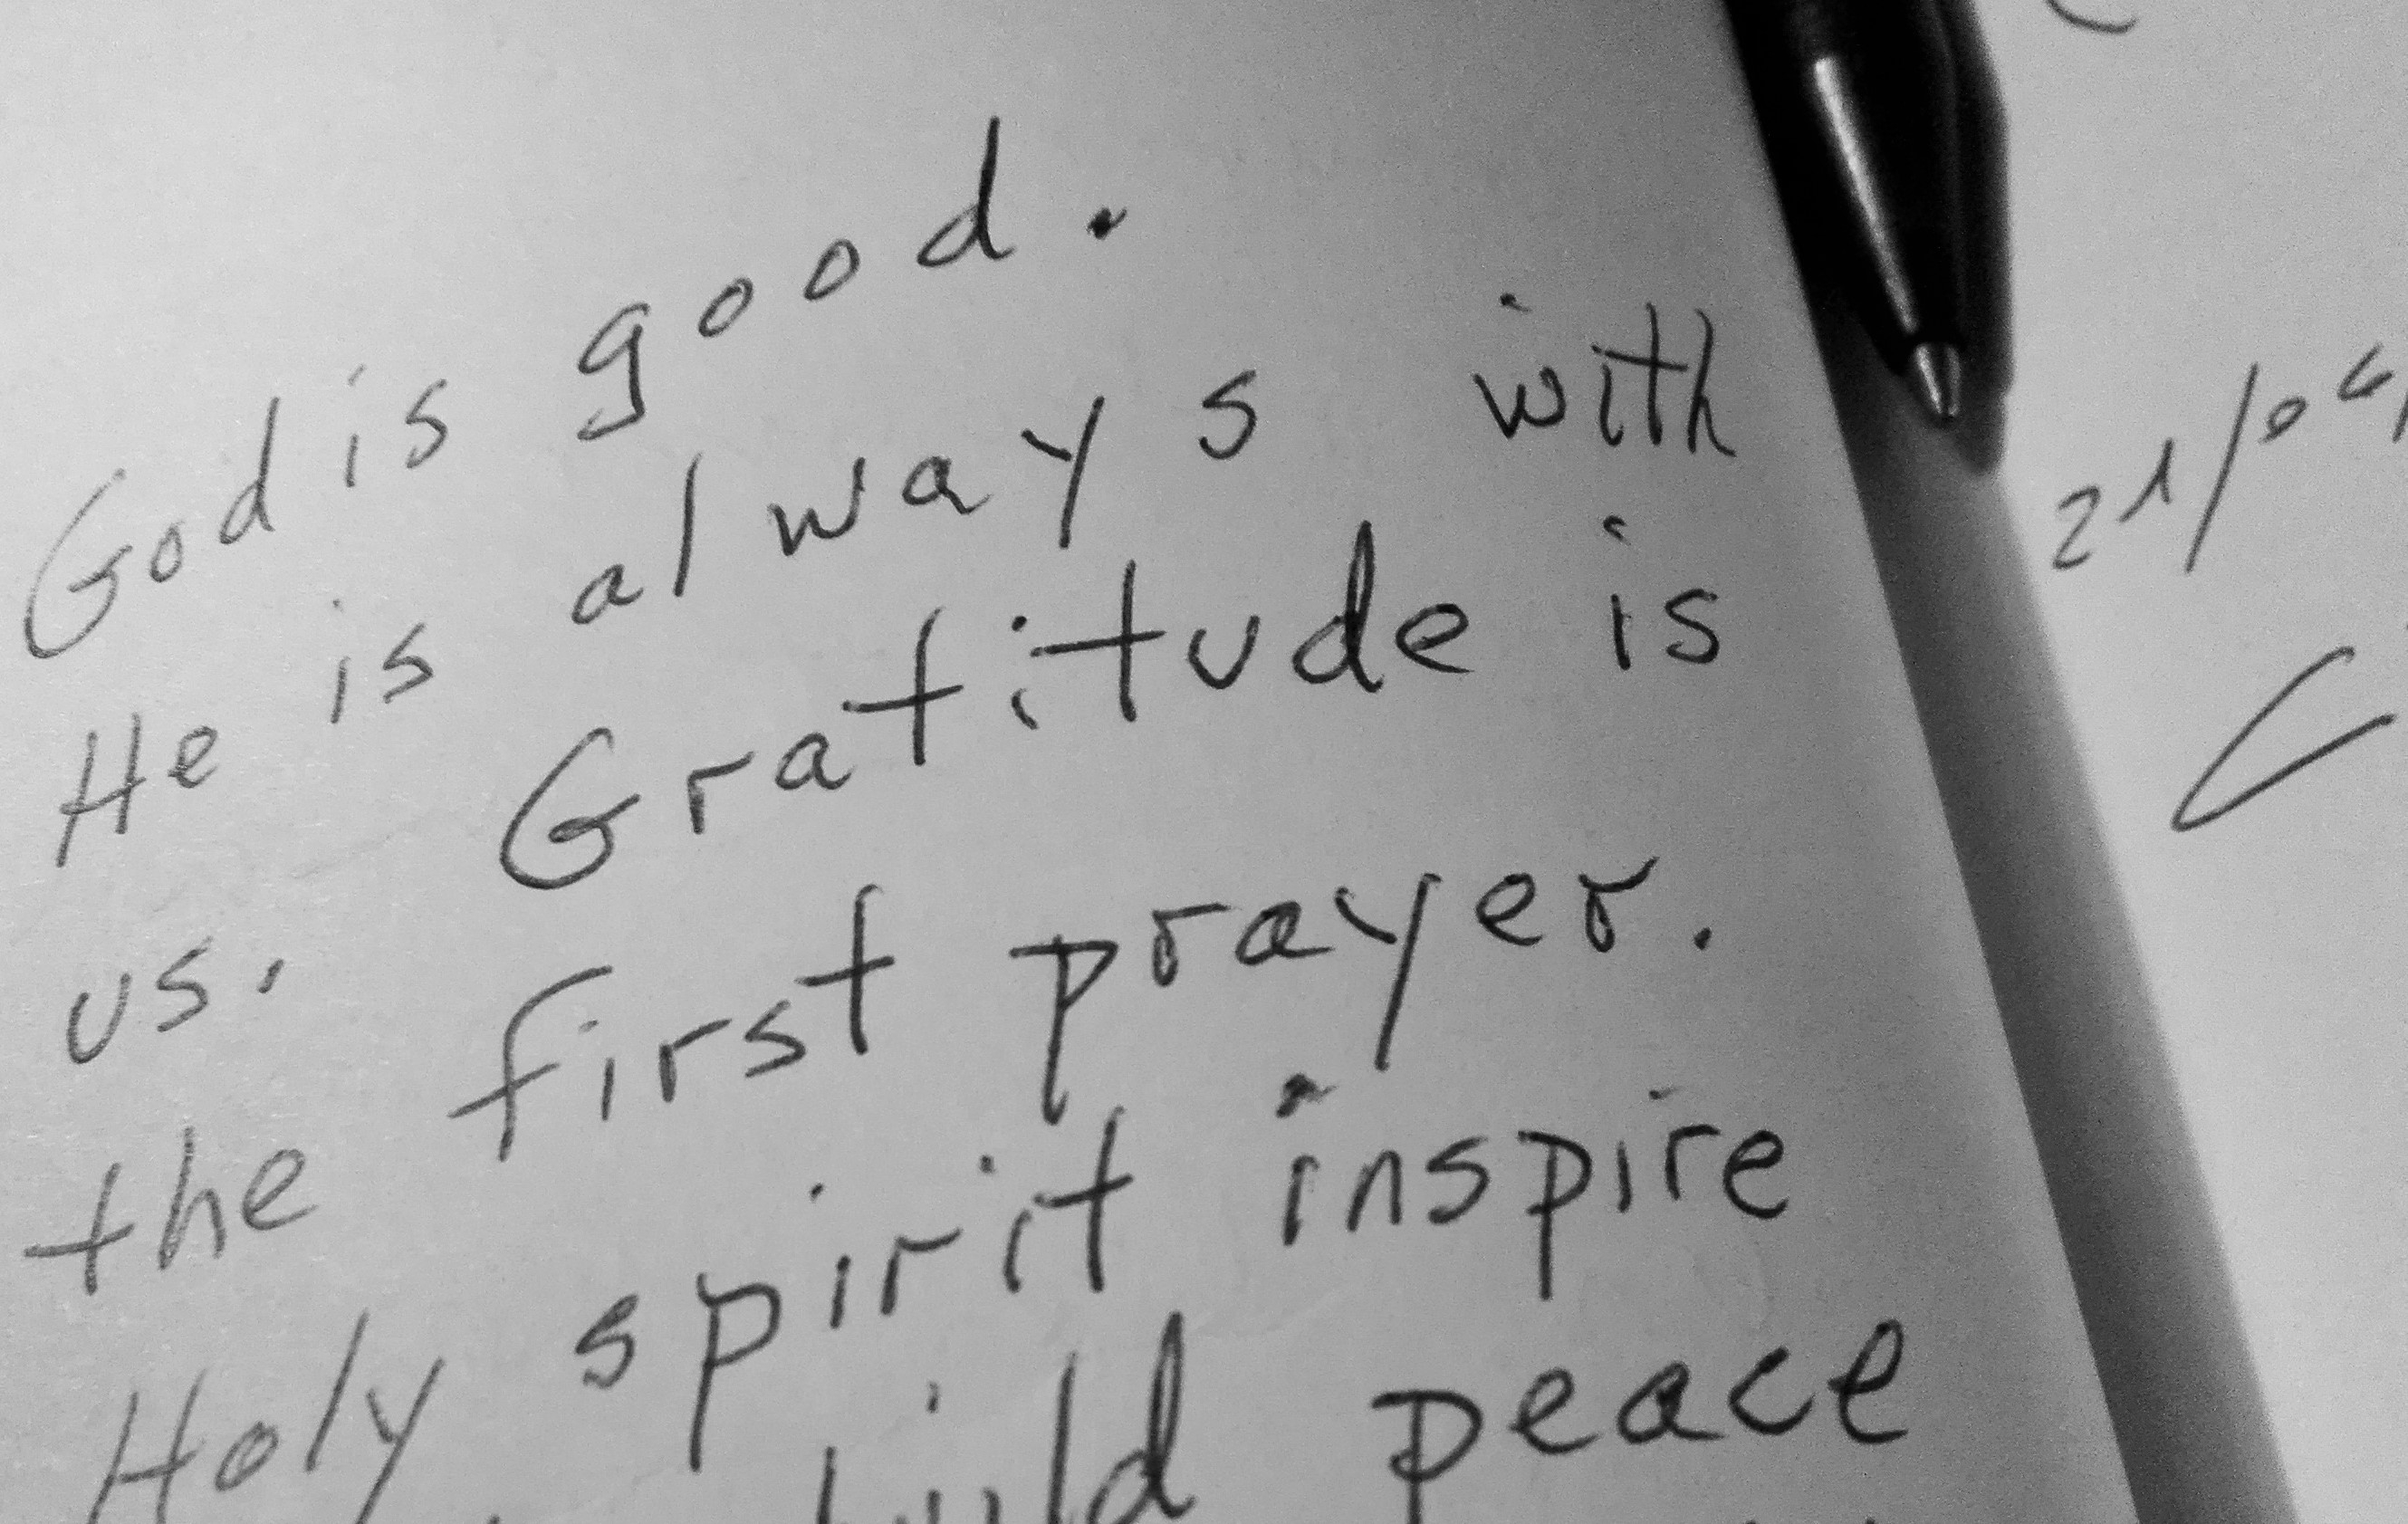 God is good.
He is always with
us. Gratitude is
the first prayer.
Holy spirit inspire
build peace
21/04